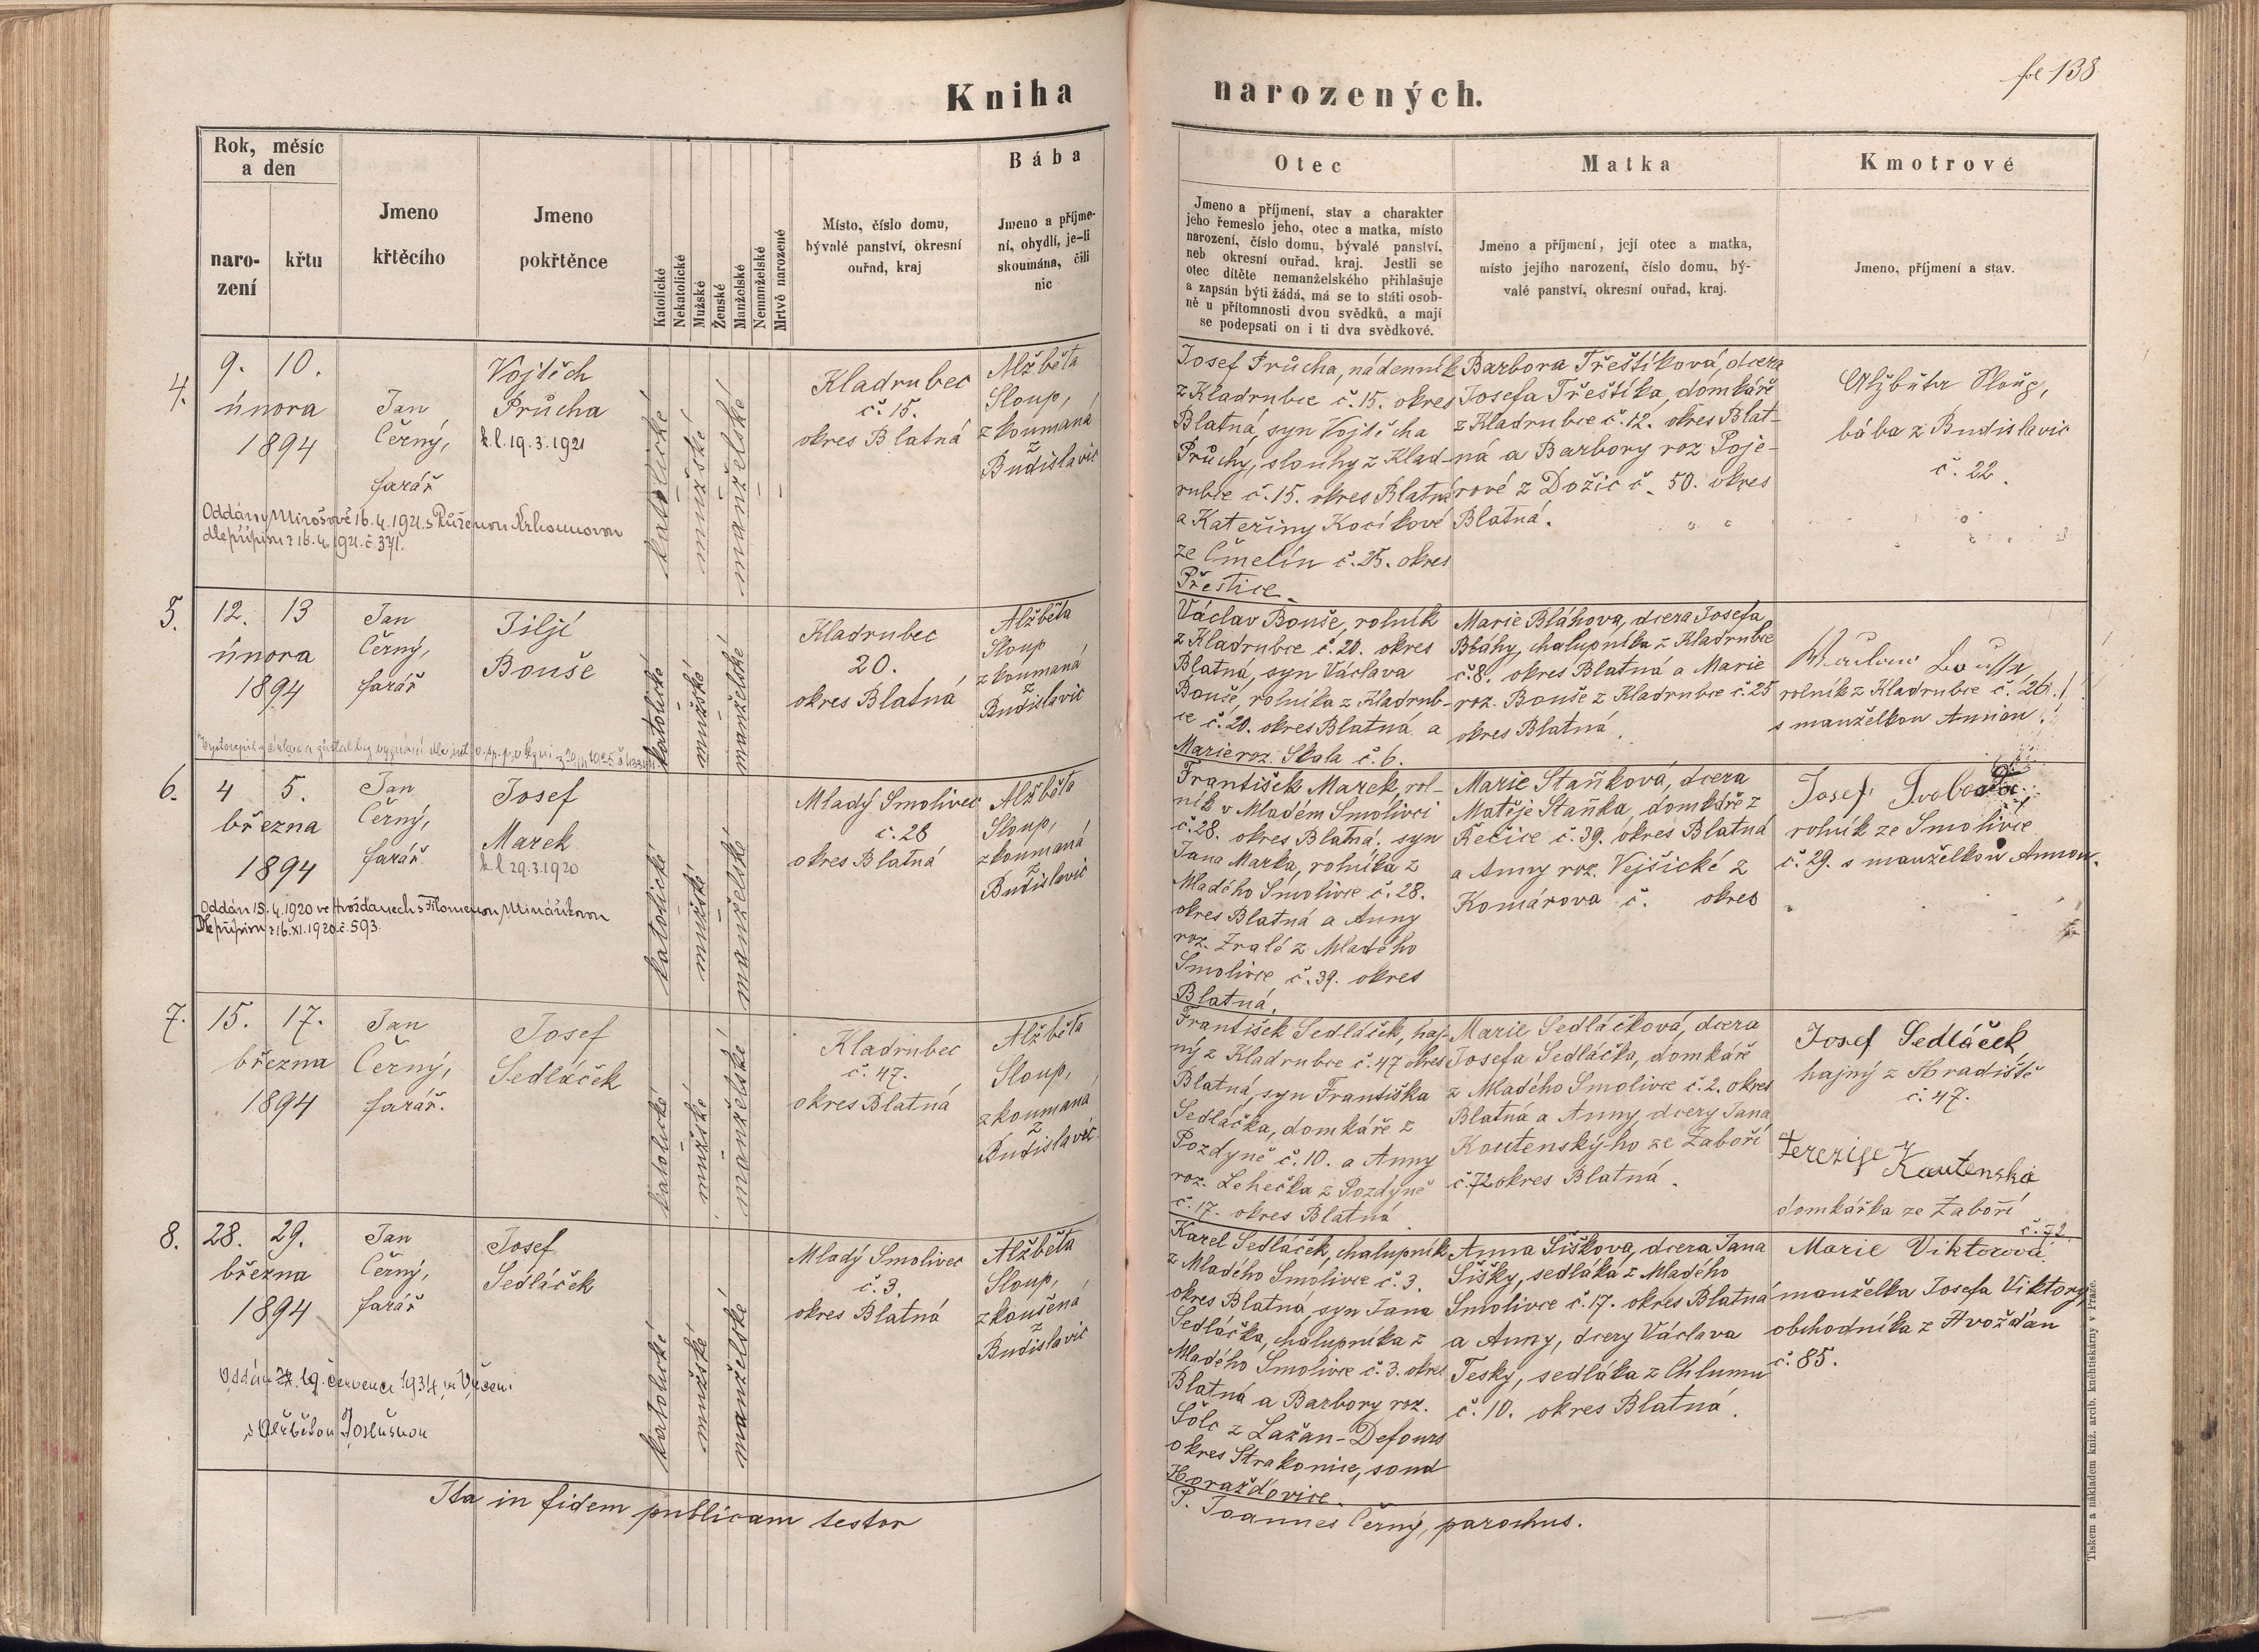 fol 138
Kniha narozených.
Rok, měsíc
a den
naro-
zení
křtu
Jmeno
křtěcího
Jmeno
pokřtěnce
Katolické
Nekatolické
Mužské
Ženské
Manželské
Nemanželské
Mrtvě narozené
Místo, číslo domu,
bývalé panství, okresní
ouřad, kraj
Bába
Jmeno a příjme-
ní, obydlí, je-li
skoumána, čili
nic
Otec
Jmeno a příjmení, stav a charakter
jeho řemeslo jeho, otec a matka, místo
narození, číslo domu, bývalé panství,
neb okresní ouřad, kraj. Jestli se
otec dítěte nemanželského přihlašuje
a zapsán býti žádá, má se to státi osob-
ně u přítomnosti dvou svědků, a mají
se podepsati on i ti dva svědkové.
Matka
Jmeno a příjmení, její otec a matka,
místo jejího narození, číslo domu, bý-
valé panství, okresní ouřad, kraj.
Kmotrové
Jmeno, příjmení a stav.
4.
9. 10.
února
1894
Jan
Černý,
farář
Vojtěch
Průcha
k.l. 19.3.1921
Oddán v Mirošově 16.4.1921 s Růženou
dle přípisu z 16.4.1921 č. 371.
katolické
mužské
manželské
Kladrubec
č. 15.
okres Blatná
Alžběta
Sloup,
zkoumaná
z
Budislavic
Josef Průcha, nádenník
z Kladrubce č. 15. okres
Blatná, syn Vojtěcha
Průchy, slouhy z Klad-
rubce č. 15. okres Blatná
a Kateřiny Kocíkové
ze Čmelín č. 25. okres
Přeštice.
Barbora Třeštíková, dcera
Josefa Třeštíka, domkáře
z Kladrubce č. 12. okres Blat-
ná a Barbory roz Poje-
rové z Dožic č. 50. okres
Blatná.
Alžběta Sloup,
bába z Budislavic
č. 22.
5.
12. 13
února
1894
Jan
Černý,
farář
Jiljí
Bouše
Vystoupil z církve a zůstal bez vyznání
katolické
mužské
manželské
Kladrubec
20.
okres Blatná
Alžběta
Sloup
zkoumaná
z
Budislavic
Václav Bouše, rolník
z Kladrubce č. 20. okres
Blatná, syn Václava
Bouše, rolníka z Kladrub-
ce č. 20. okres Blatná a
Marie roz. Skala č. 6.
Marie Bláhova, dcera Josefa
Bláhy, chalupníka z Kladrubce
č. 8. okres Blatná a Marie
roz. Bouše z Kladrubce č. 25
okres Blatná.
rolník z Kladrubce č. 26.
s manželkou Annou.
6.
4 5.
března
1894
Jan
Černý,
farář
Josef
Marek
k l 29.3.1920
Oddán 15.4.1920 ve Hvožďanech s Filomenou Mináříkovou
Dle přípisu z 16.XI.1920 č. 593.
katolické
mužské
manželské
Mladý Smolivec
č. 28
okres Blatná
Alžběta
Sloup,
zkoumaná
z
Budislavic
František Marek, rol-
ník v Mladém Smolivci
č. 28. okres Blatná, syn
Jana Marka, rolníka z
Mladého Smolivce č. 28.
okres Blatná a Anny
roz. Zralé z Mladého
Smolivce č. 39. okres
Blatná.
Marie Staňková, dcera
Matěje Staňka, domkáře z
Řečice č. 39. okres Blatná
a Anny roz. Vejšické z
Komárova č. okres
Josef Svoboda,
rolník ze Smolivce
č. 29. s manželkou Annou.
7.
15. 17.
března
1894
Jan
Černý,
farář.
Josef
Sedláček
katolické
mužské
manželské
Kladrubec
č. 47.
okres Blatná
Alžběta
Sloup,
zkoumaná
z
Budislavic
František Sedláček, haj-
ný z Kladrubce č. 47 okres
Blatná, syn Františka
Sedláčka, domkáře z
Pozdyně č. 10. a Anny
roz. Lehečka z Pozdyně
č. 17. okres Blatná
Marie Sedláčková, dcera
Josefa Sedláčka, domkáře
z Mladého Smolivce č. 2. okres
Blatná a Anny, dcery Jana
Koutenský-ho ze Zaboří
č. 72 okres Blatná.
Josef Sedláček
hajný z Hradiště
č. 47.
Terezije Kautenská
domkářka ze Zaboří
č. 72.
8.
28. 29.
března
1894
Jan
Černý,
farář
Josef
Sedláček
Oddán 19. července 1934 ve
s Alžbětou
katolické
mužské
manželské
Mladý Smolivec
č. 3.
okres Blatná
Alžběta
Sloup,
zkoušená
z
Budislavic
Karel Sedláček, chalupník
z Mladého Smolivce č. 3.
okres Blatná, syn Jana
Sedláčka, chalupníka z
Mladého Smolivce č. 3. okres
Blatná a Barbory roz.
Šolc z Lažan-Defours
okres Strakonice, soud
Horažďovice.
Anna Šiškova, dcera Jana
Šišky, sedláka z Mladého
Smolivce č. 17. okres Blatná
a Anny, dcery Václava
Tesky, sedláka z Chlumu
č. 10. okres Blatná.
Marie Viktorová
manželka Josefa Viktory,
obchodníka z Hvožďan
č. 85.
Ita in fidem publicam testor
P. Joannes Černý, parochus.
Tiskem a nákladem kníž. arcib. kněhtiskárny v Praze.